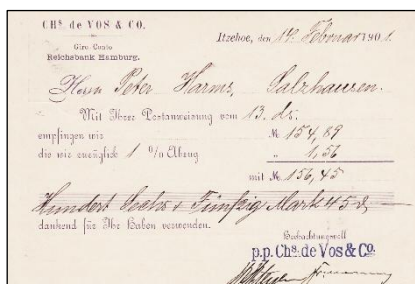 CHs. de VOS & CO.
Giro Conto
Reichsbank Hamburg.
Itzehoe, den 14. Februar 1901.
Herrn Peter Harms, Salzhausen.
Mit Ihrer Postanweisung vom 13. ds.
empfingen wir № 154,89
die wir zuzüglich 1 % Abzug „ 1,56
mit № 156,45
Hundert Sechs & Fünfzig Mark 45 ₰
dankend für Ihr Haben verwenden.
Hochachtungsvoll
p.p. Chs. de Vos & Co.